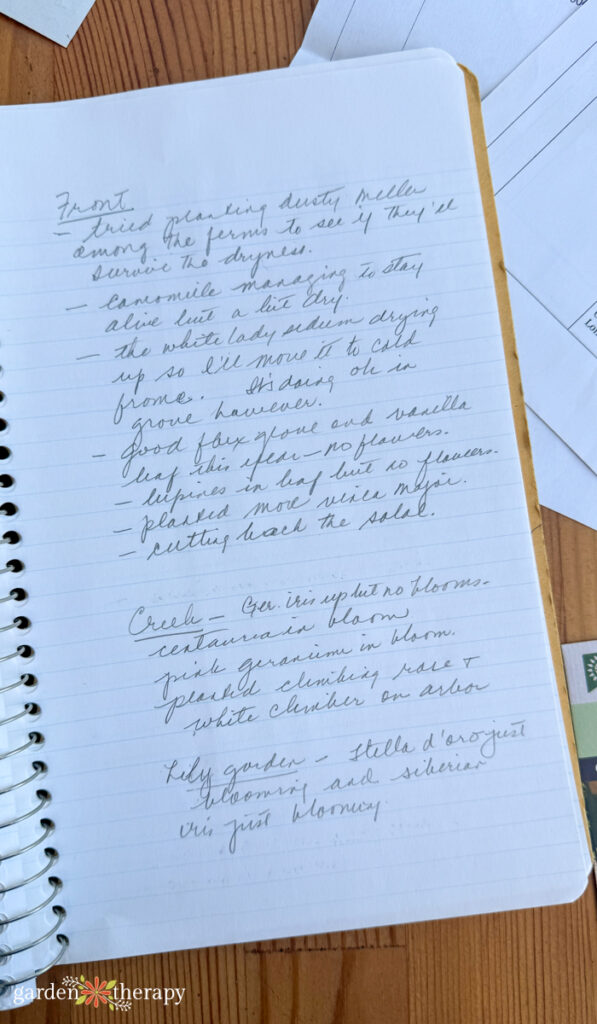 Front
- tried planting dusty meller
among the ferns to see if they'll
survive the dryness.
- camomile managing to stay
alive but a bit dry.
- the white lady sedum drying
up so I'll move it to cold
frame. It's doing ok in
grove however.
- good flox glove and vanilla
leaf this year - no flowers.
- lupines in leaf but no flowers.
- planted more vinca major.
- cutting back the salal.
Creek - Ger. iris up but no blooms.
centauria in bloom
pink geranium in bloom.
planted climbing rose +
white climber on arbor
Lily garden - Stella d'oro just
blooming and siberian
iris just blooming
garden therapy